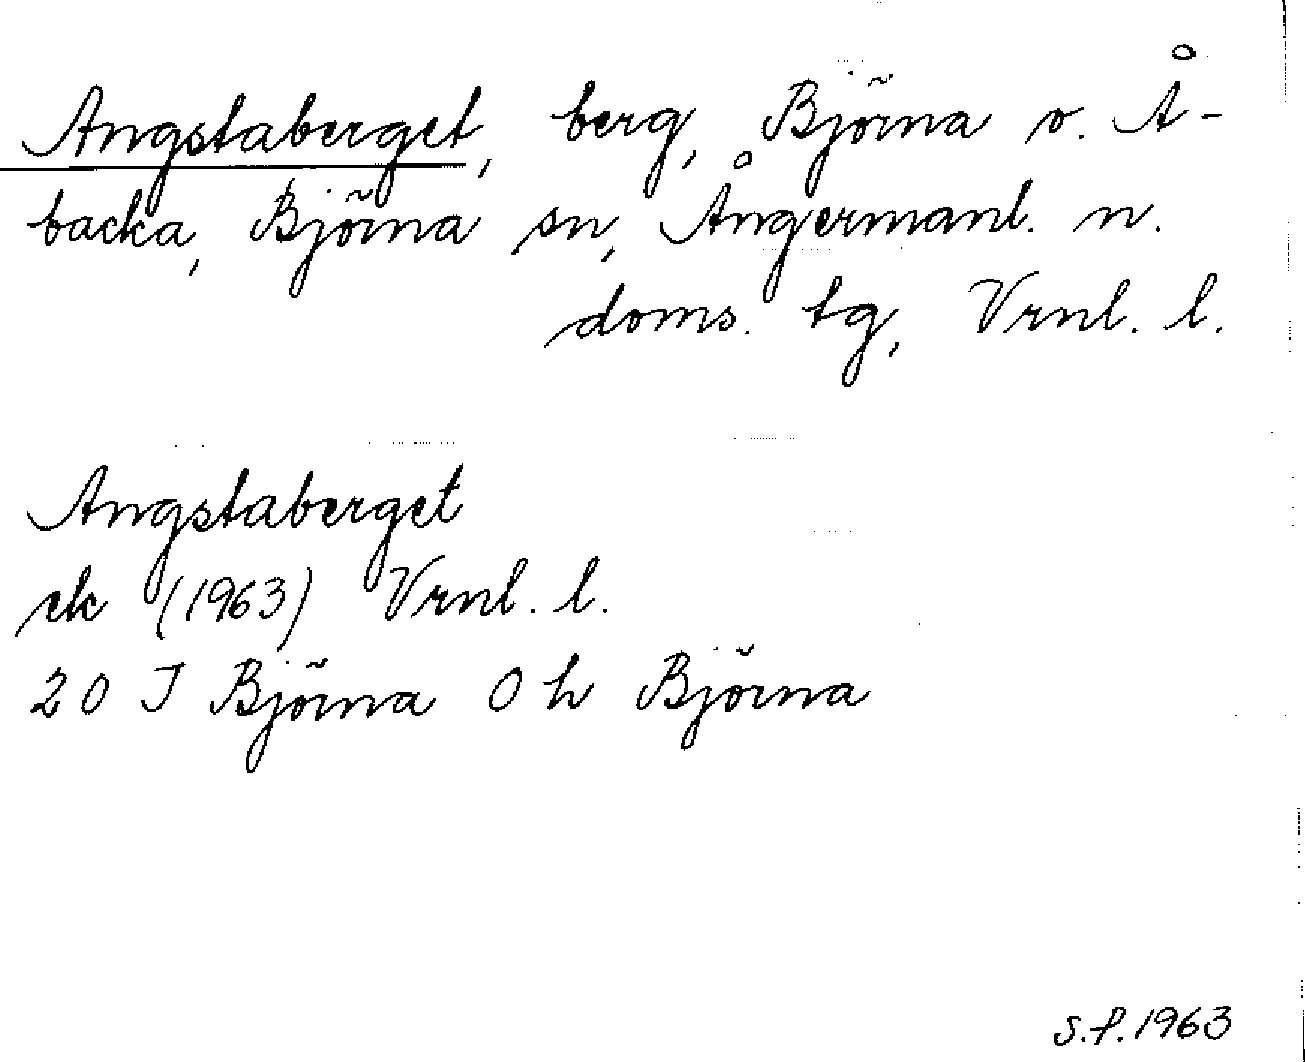 Angstaberget, berg, Björna o. Å-
backa, Björna sn, Ångermanl. n.
doms. tg, Vrnl. l.
Angstaberget
ek (1963) Vrnl. l.
20 I Björna 0 h Björna
S.f. 1963